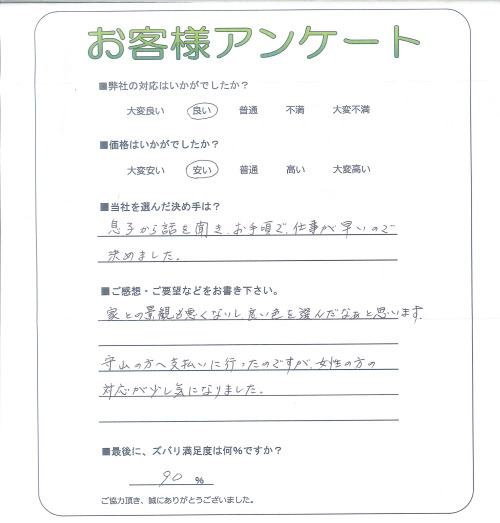 お客様アンケート
■弊社の対応はいかがでしたか?
大変良い 良い 普通 不満 大変不満
■価格はいかがでしたか?
大変安い 安い 普通 高い 大変高い
■当社を選んだ決め手は?
息子から話を聞き、お手頃で、仕事が早いので
決めました。
■ご感想・ご要望などをお書き下さい。
家との景観も悪くないし、良い色を選んだなぁと思います。
守山の方へ支払いに行ったのですが、女性の方の
対応が少し気になりました。
■最後に、ズバリ満足度は何%ですか?
90 %
ご協力頂き、誠にありがとうございました。